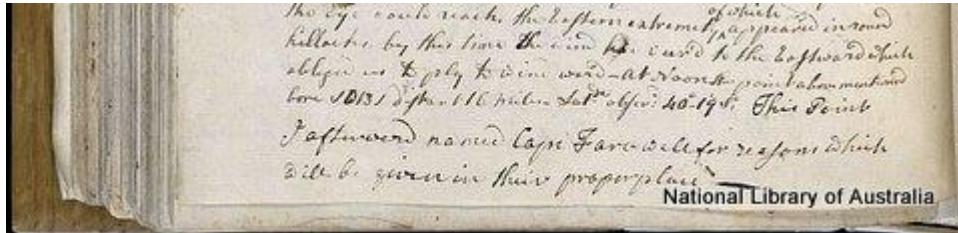 the eye could reach, the Eastern extremety of which appeared in round
hillocks, by this time the wind had veer'd to the Eastward which
obliged us to ply to wind ward - At Noon the point above mentiond
bore distant 16 miles Latde obser: 40°..19' S: This Point
I afterward named Cape Farewell for reasons which
will be given in their proper place
National Library of Australia